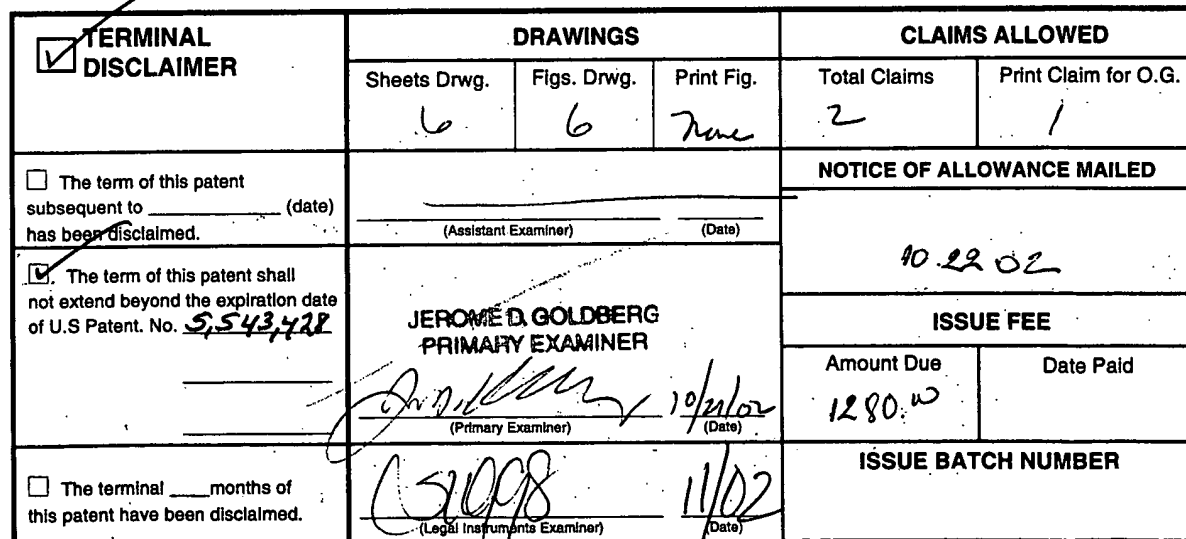 TERMINAL
DISCLAIMER
The term of this patent
subsequent to ______ (date)
has been disclaimed.
The term of this patent shall
not extend beyond the expiration date
of U.S Patent. No. 5,543,428
The terminal ____months of
this patent have been disclaimed.
DRAWINGS
Sheets Drwg. Figs. Drwg. Print Fig.
6 6 None
(Assistant Examiner) (Date)
JEROME D. GOLDBERG
PRIMARY EXAMINER
10/21/02
(Primary Examiner) (Date)
11/02
(Legal Instruments Examiner) (Date)
CLAIMS ALLOWED
Total Claims Print Claim for O.G.
2 1
NOTICE OF ALLOWANCE MAILED
10.22 02
ISSUE FEE
Amount Due Date Paid
1280.00
ISSUE BATCH NUMBER